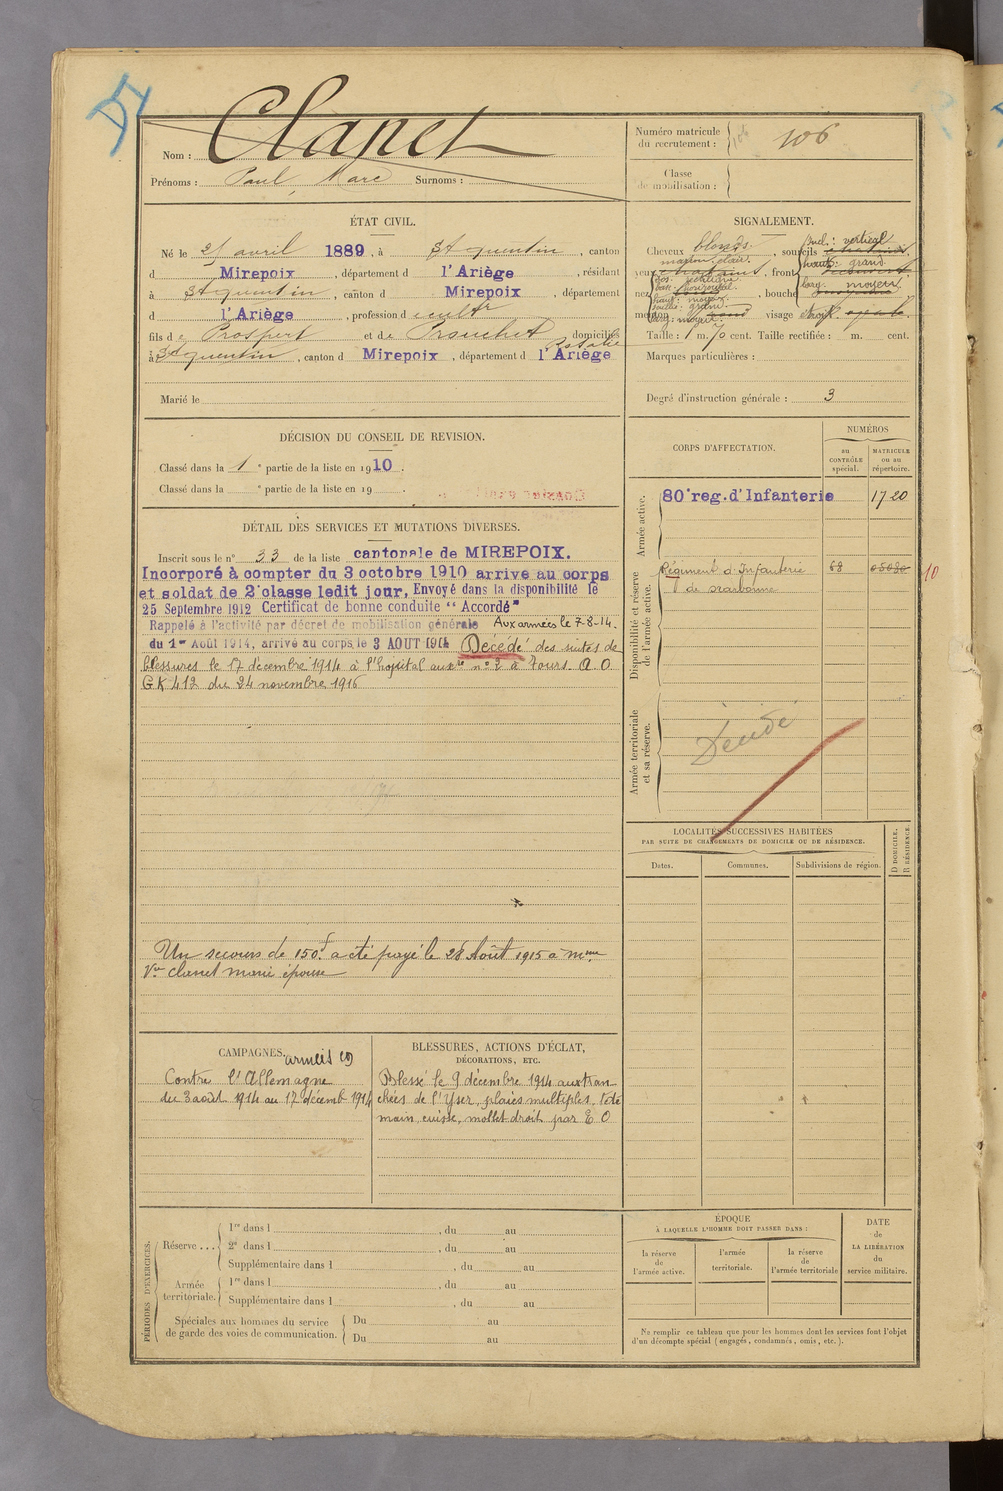 DI
Nom : Clanet
Prénoms : Paul, Marc Surnoms :
Numéro matricule du recrutement : 106
Classe de mobilisation :
ÉTAT CIVIL.
Né le 21 avril 1889, à St quentin, canton
d Mirepoix, département d l'Ariège, résidant
à St quentin, canton d Mirepoix, département
d l'Ariège, profession d cultr
fils de Prospert et de domiciliés
à St quentin, canton d Mirepoix, département d l'Ariège
Marié le
SIGNALEMENT.
Cheveux blonds. sourcils
marron clair.
yeux front
nez bouche
menton visage
Taille : 1 m. 70 cent. Taille rectifiée : m. cent.
Marques particulières :
Degré d'instruction générale : 3
DÉCISION DU CONSEIL DE REVISION.
Classé dans la 1e partie de la liste en 1910.
Classé dans la e partie de la liste en 19 .
DÉTAIL DES SERVICES ET MUTATIONS DIVERSES.
Inscrit sous le n° 33 de la liste cantonale de MIREPOIX.
Incorporé à compter du 3 octobre 1910 arrive au corps
et soldat de 2e classe ledit jour, Envoyé dans la disponibilité le
25 Septembre 1912 Certificat de bonne conduite "Accordé"
Rappelé à l'activité par décret de mobilisation générale Aux armées le 7-8-14.
du 1er Août 1914, arrivé au corps le 3 AOUT 1914 Décédé des suites de
blessures le 17 décembre 1914 à l'hopital auxre n° 2 à Tours. A. O
G.K 412 du 24 novembre 1916
Un secours de 150f. a été payé le 28 Août 1915 à Mme
Vve Clanet Marie épouse
CORPS D'AFFECTATION.
NUMÉROS
au CONTRÔLE spécial.
MATRICULE ou au répertoire.
Armée active.
80e reg. d'Infanterie 1720
Disponibilité et réserve de l'armée active.
Régiment d'Infanterie 68 05080 10
de Narbonne
Armée territoriale et sa réserve.
Décédé
LOCALITÉS SUCCESSIVES HABITÉES
PAR SUITE DE CHANGEMENTS DE DOMICILE OU DE RÉSIDENCE.
Dates. Communes. Subdivisions de région. D DOMICILE. R RÉSIDENCE.
CAMPAGNES.
Contre l'Allemagne
du 3 août 1914 au 17 décemb 1914
BLESSURES, ACTIONS D'ÉCLAT,
DÉCORATIONS, ETC.
Blessé le 9 décembre 1914 aux tran
chées de l'Yser, plaies multiples, tête
main, cuisse, mollet droit par E O
PÉRIODES D'EXERCICES.
Réserve ... 1re dans l , du au
2e dans l , du au
Supplémentaire dans l , du au
Armée territoriale. 1re dans l , du au
Supplémentaire dans l , du au
Spéciales aux hommes du service Du au
de garde des voies de communication. Du au
ÉPOQUE
À LAQUELLE L'HOMME DOIT PASSER DANS :
la réserve de l'armée active.
l'armée territoriale.
la réserve de l'armée territoriale
DATE de LA LIBÉRATION du service militaire.
Ne remplir ce tableau que pour les hommes dont les services font l'objet
d'un décompte spécial (engagés, condamnés, omis, etc.).